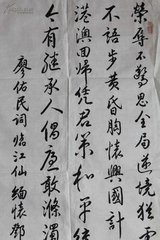 荣辱不惊全局运境犹
不语步黄昏胸怀兴国计
港澳回归凭君策和平统
今有继承人倡廉敢涤浊
廖佑民词临江仙缅怀邓